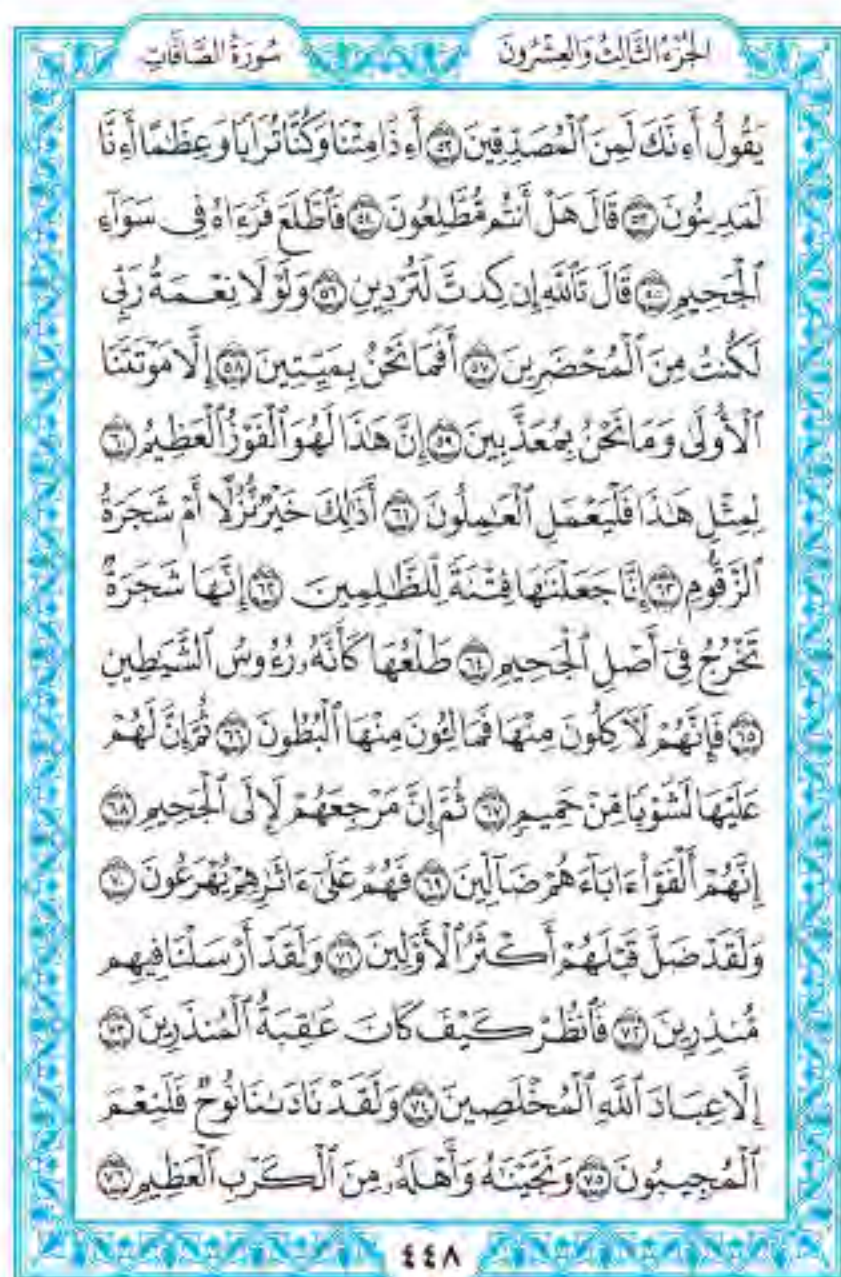 الجُزْءُ الثَّالِثُ وَالعِشْرُونَ سُورَةُ الصَّافَّاتِ
يَقُولُ أَءِنَّكَ لَمِنَ ٱلْمُصَدِّقِينَ ٥٢ أَءِذَا مِتْنَا وَكُنَّا تُرَابًا وَعِظَٰمًا أَءِنَّا
لَمَدِينُونَ ٥٣ قَالَ هَلْ أَنتُم مُّطَّلِعُونَ ٥٤ فَٱطَّلَعَ فَرَءَاهُ فِى سَوَآءِ
ٱلْجَحِيمِ ٥٥ قَالَ تَٱللَّهِ إِن كِدتَّ لَتُرْدِينِ ٥٦ وَلَوْلَا نِعْمَةُ رَبِّى
لَكُنتُ مِنَ ٱلْمُحْضَرِينَ ٥٧ أَفَمَا نَحْنُ بِمَيِّتِينَ ٥٨ إِلَّا مَوْتَتَنَا
ٱلْأُولَىٰ وَمَا نَحْنُ بِمُعَذَّبِينَ ٥٩ إِنَّ هَٰذَا لَهُوَ ٱلْفَوْزُ ٱلْعَظِيمُ ٦٠
لِمِثْلِ هَٰذَا فَلْيَعْمَلِ ٱلْعَٰمِلُونَ ٦١ أَذَٰلِكَ خَيْرٌ نُّزُلًا أَمْ شَجَرَةُ
ٱلزَّقُّومِ ٦٢ إِنَّا جَعَلْنَٰهَا فِتْنَةً لِّلظَّٰلِمِينَ ٦٣ إِنَّهَا شَجَرَةٌ
تَخْرُجُ فِىٓ أَصْلِ ٱلْجَحِيمِ ٦٤ طَلْعُهَا كَأَنَّهُۥ رُءُوسُ ٱلشَّيَٰطِينِ
٦٥ فَإِنَّهُمْ لَءَاكِلُونَ مِنْهَا فَمَالِـُٔونَ مِنْهَا ٱلْبُطُونَ ٦٦ ثُمَّ إِنَّ لَهُمْ
عَلَيْهَا لَشَوْبًا مِّنْ حَمِيمٍ ٦٧ ثُمَّ إِنَّ مَرْجِعَهُمْ لَإِلَى ٱلْجَحِيمِ ٦٨
إِنَّهُمْ أَلْفَوْا۟ ءَابَآءَهُمْ ضَآلِّينَ ٦٩ فَهُمْ عَلَىٰٓ ءَاثَٰرِهِمْ يُهْرَعُونَ ٧٠
وَلَقَدْ ضَلَّ قَبْلَهُمْ أَكْثَرُ ٱلْأَوَّلِينَ ٧١ وَلَقَدْ أَرْسَلْنَا فِيهِم
مُّنذِرِينَ ٧٢ فَٱنظُرْ كَيْفَ كَانَ عَٰقِبَةُ ٱلْمُنذَرِينَ ٧٣
إِلَّا عِبَادَ ٱللَّهِ ٱلْمُخْلَصِينَ ٧٤ وَلَقَدْ نَادَىٰنَا نُوحٌ فَلَنِعْمَ
ٱلْمُجِيبُونَ ٧٥ وَنَجَّيْنَٰهُ وَأَهْلَهُۥ مِنَ ٱلْكَرْبِ ٱلْعَظِيمِ ٧٦
٤٤٨